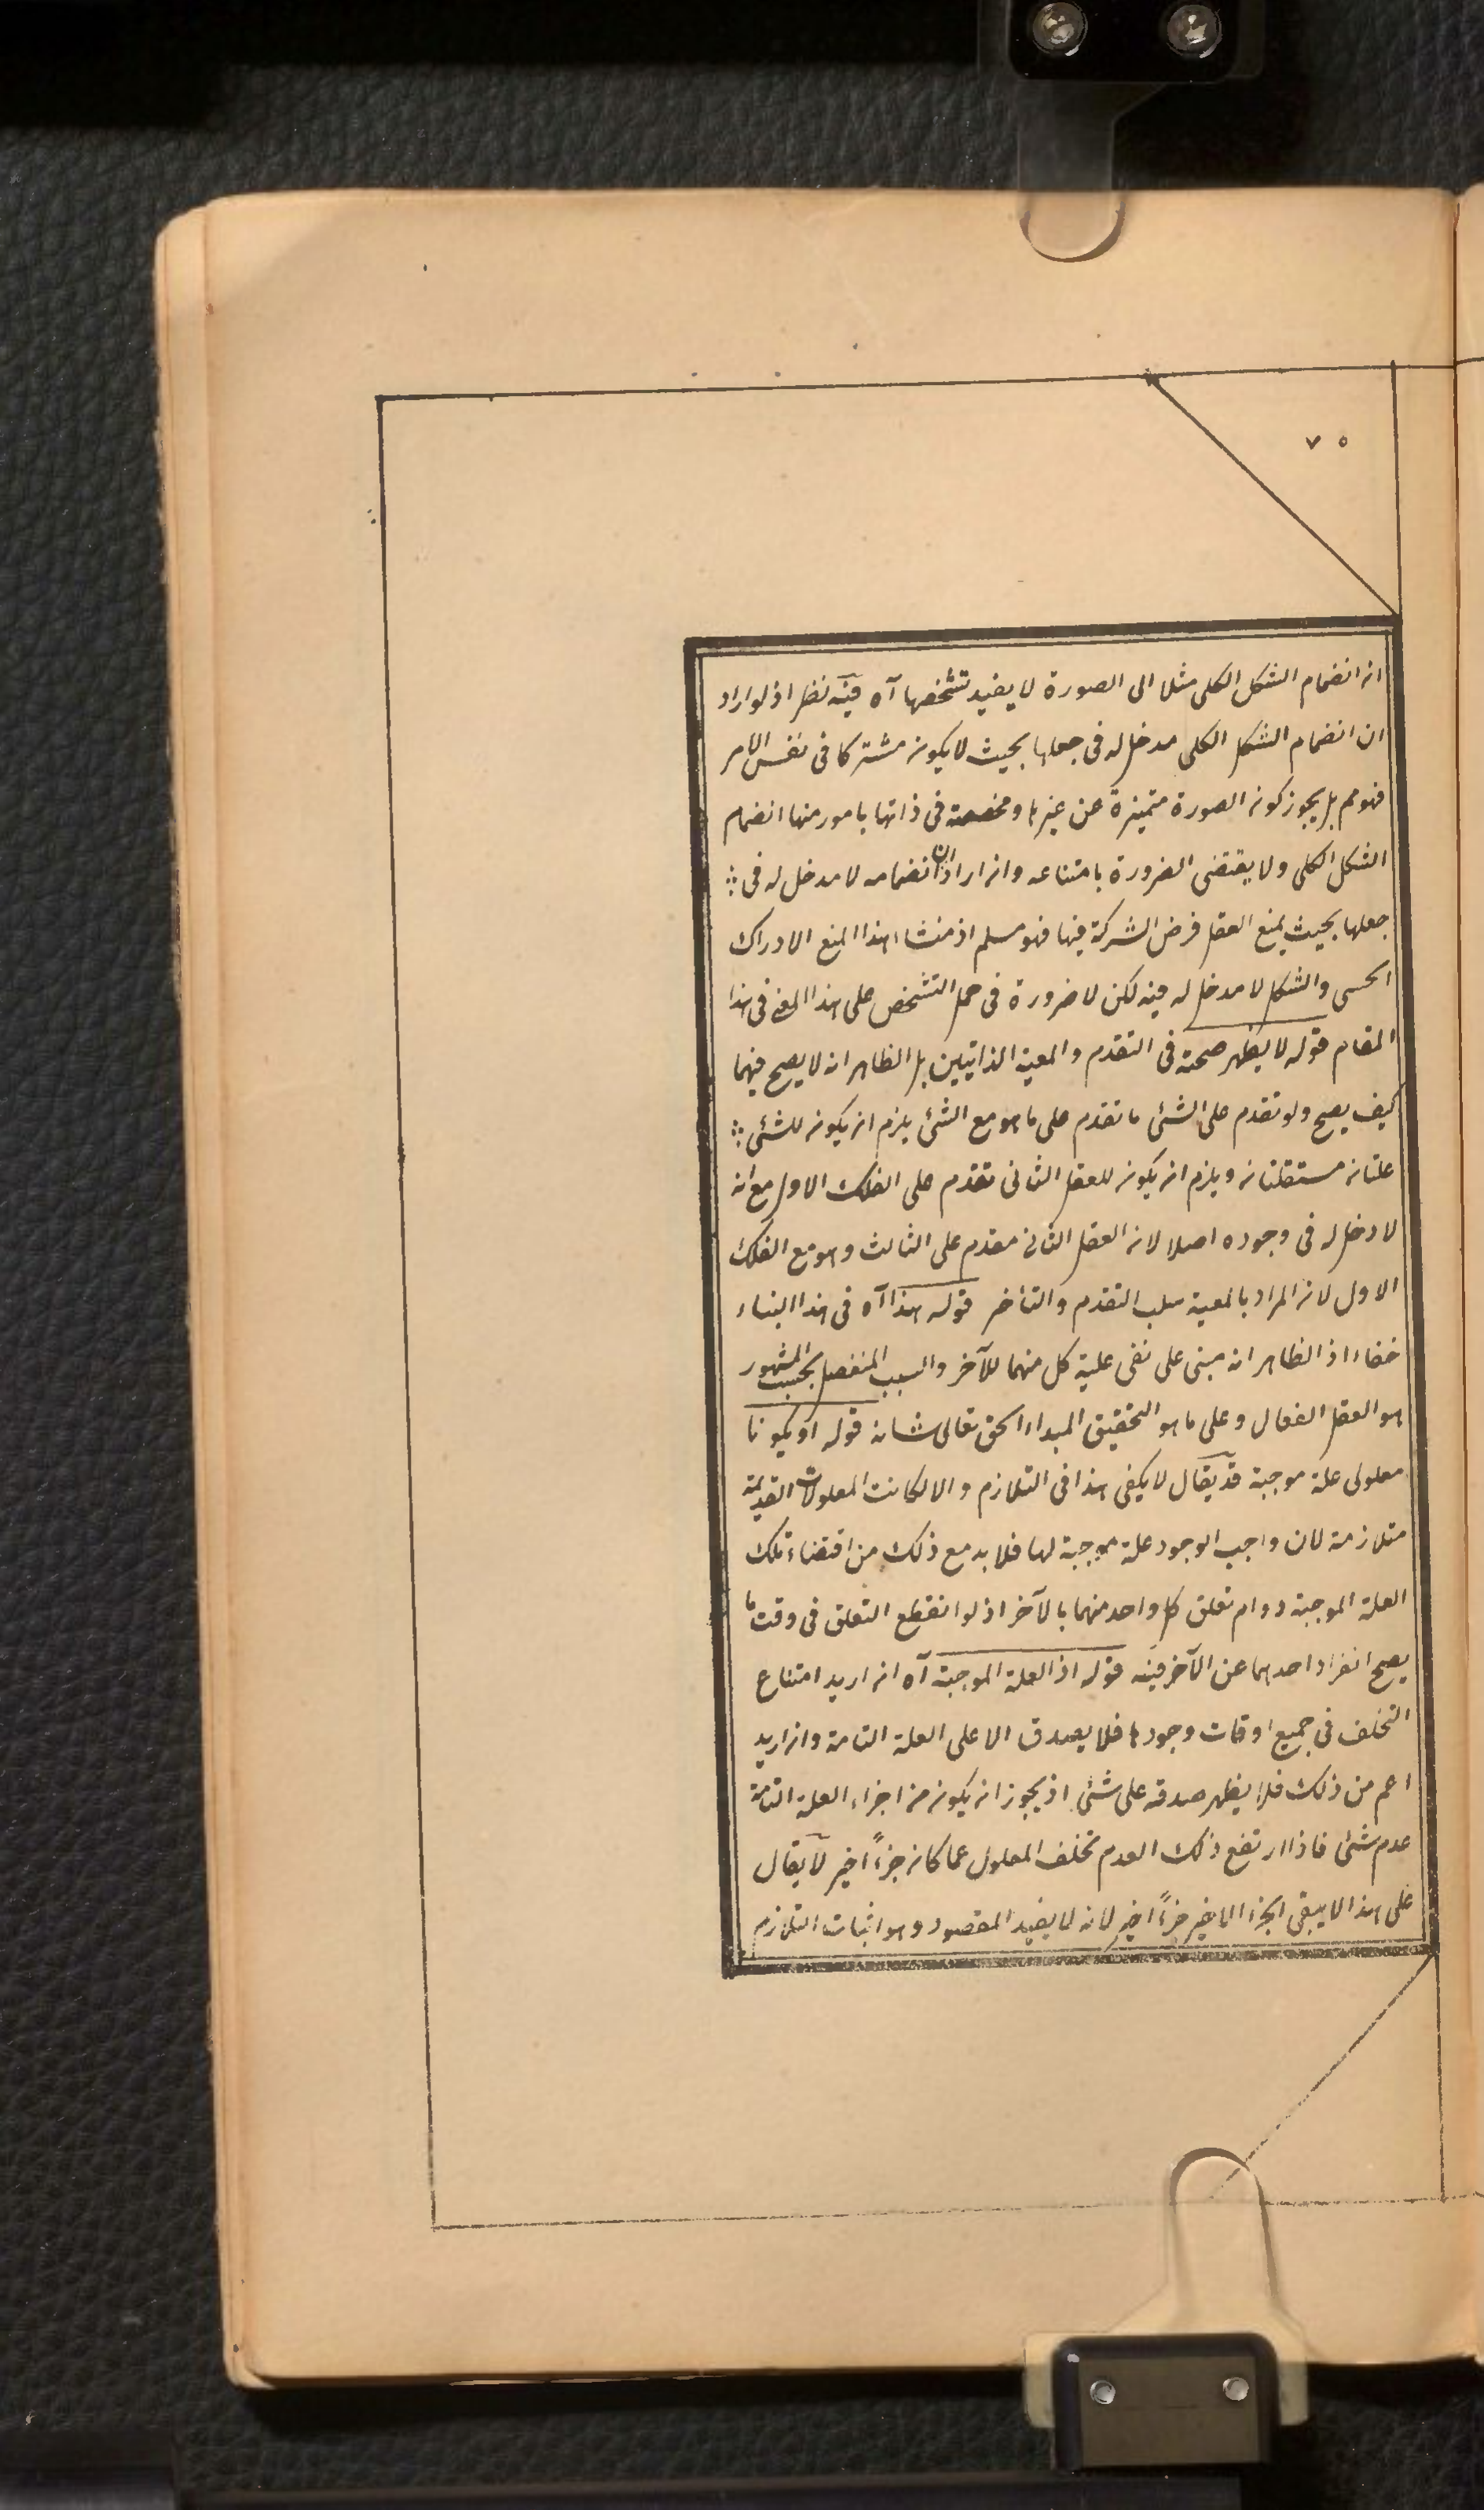 ٧٥
ان انضمام الشكل الكلى مثلا الى الصورة لا يفيد تشخصها آه فيه نظر اذ لو اراد
ان انضمام الشكل الكلى مدخل له فى جعلها بحيث لا يكون مشتركا فى نفس الامر
فهو مم بل يجوز كون الصورة متميزة عن غيرها ومخصصة فى ذاتها بامور منها انضمام
الشكل الكلى ولا يقتضى الضرورة بامتناعه وان اراد ان انضمامه لا مدخل له فى
جعلها بحيث يمنع العقل فرض الشركة فيها فهو مسلم اذ منشاء هذا المنع الادراك
الحسى والشكل لا مدخل له فيه لكن لا ضرورة فى حمل التشخص على هذا المعنى فى هذا
المقام قوله لا يظهر صحته فى التقدم والمعية الذاتيين بل الظاهر انه لا يصح فيهما
كيف يصح ولو تقدم على الشئ ما تقدم على ما هو مع الشئ يلزم ان يكون للشئ
علتان مستقلتان ويلزم ان يكون للعقل الثانى تقدم على الفلك الاول مع انه
لا دخل له فى وجوده اصلا لان العقل الثانى مقدم على الثالث وهو مع الفلك
الاول لان المراد بالمعية سلب التقدم والتأخر قوله هذا آه فى هذا البناء
خفاء اذ الظاهر انه مبنى على نفى علية كل منهما للآخر والسبب المنفصل بحسب المشهور
هو العقل الفعال وعلى ما هو التحقيق المبداء الحق تعالى شانه قوله او يكونا
معلولى علة موجبة قد يقال لا يكفى هذا فى التلازم والا لكانت المعلولات القديمة
متلازمة لان واجب الوجود علة موجبة لها فلا بد مع ذلك من اقتضاء تلك
العلة الموجبة دوام تعلق كل واحد منهما بالآخر اذ لو انقطع التعلق فى وقت ما
يصح انفراد احدهما عن الآخر فيه قوله اذ العلة الموجبة آه ان اريد امتناع
التخلف فى جميع اوقات وجودها فلا يصدق الا على العلة التامة وان اريد
اعم من ذلك فلا يظهر صدقه على شئ اذ يجوز ان يكون من اجزاء العلة التامة
عدم شئ فاذا ارتفع ذلك العدم تخلف المعلول عما كان جزءً اخير لا يقال
على هذا لا يبقى الجزء الاخير جزءً اخير لانه لا يفيد المقصود وهو اثبات التلازم